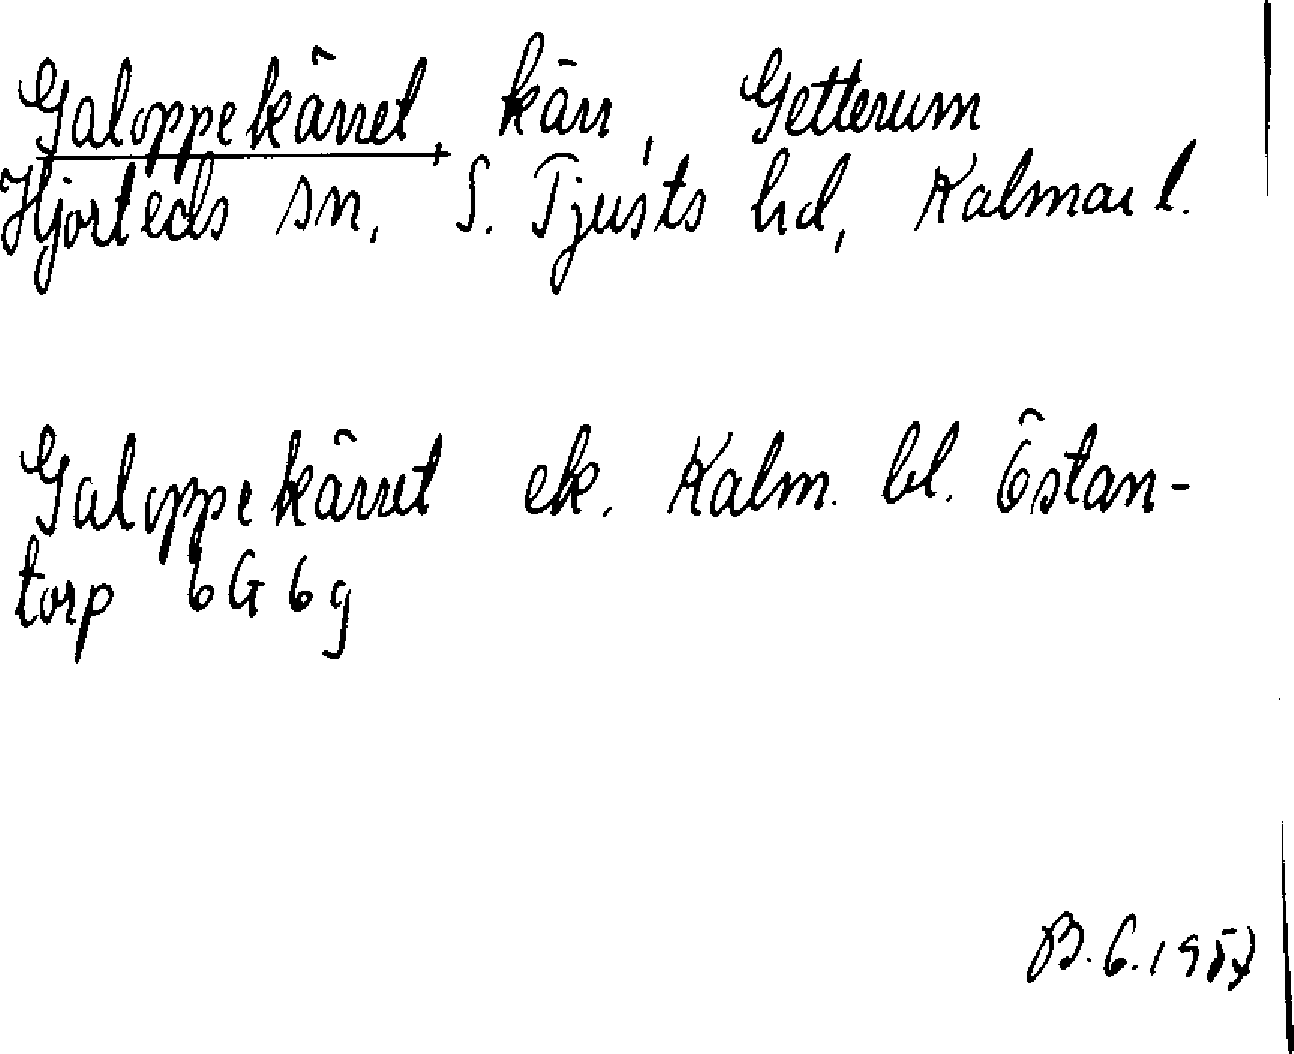 Galoppekärret, kärr, Getterum
Hjorteds sn, S. Tjusts hd, Kalmar l.
Galoppekärret ek. Kalm. bl. Östan-
torp 6 G 6 g
B. G. 1957